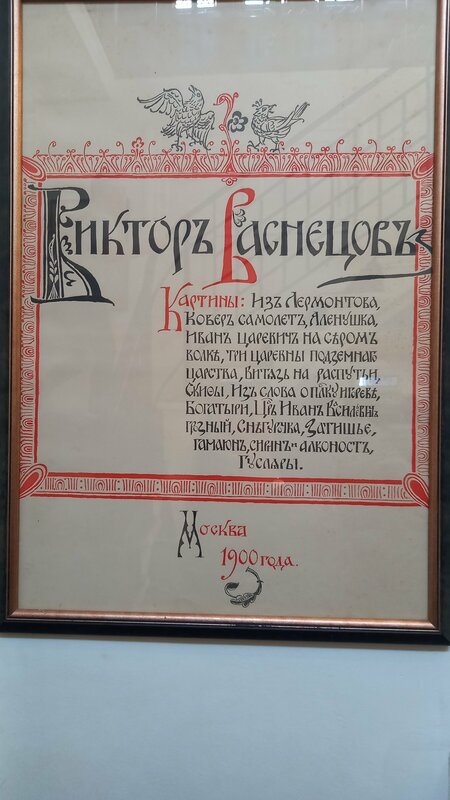 Викторъ Васнецовъ
Картины: Изъ Лермонтова,
Коверъ самолетъ, Аленушка,
Иванъ царевичъ на сѣромъ
волкѣ, три царевны подземнаго
царства, Витязь на распутьи,
Скиѳы, Изъ слова о полку игоревѣ,
Богатыри, Цръ Иванъ Василевичъ
грозный, Снѣгурука, Затишье,
гамаюнъ, сиринъ и алконостъ,
Гусляры.
Москва
1900 года.